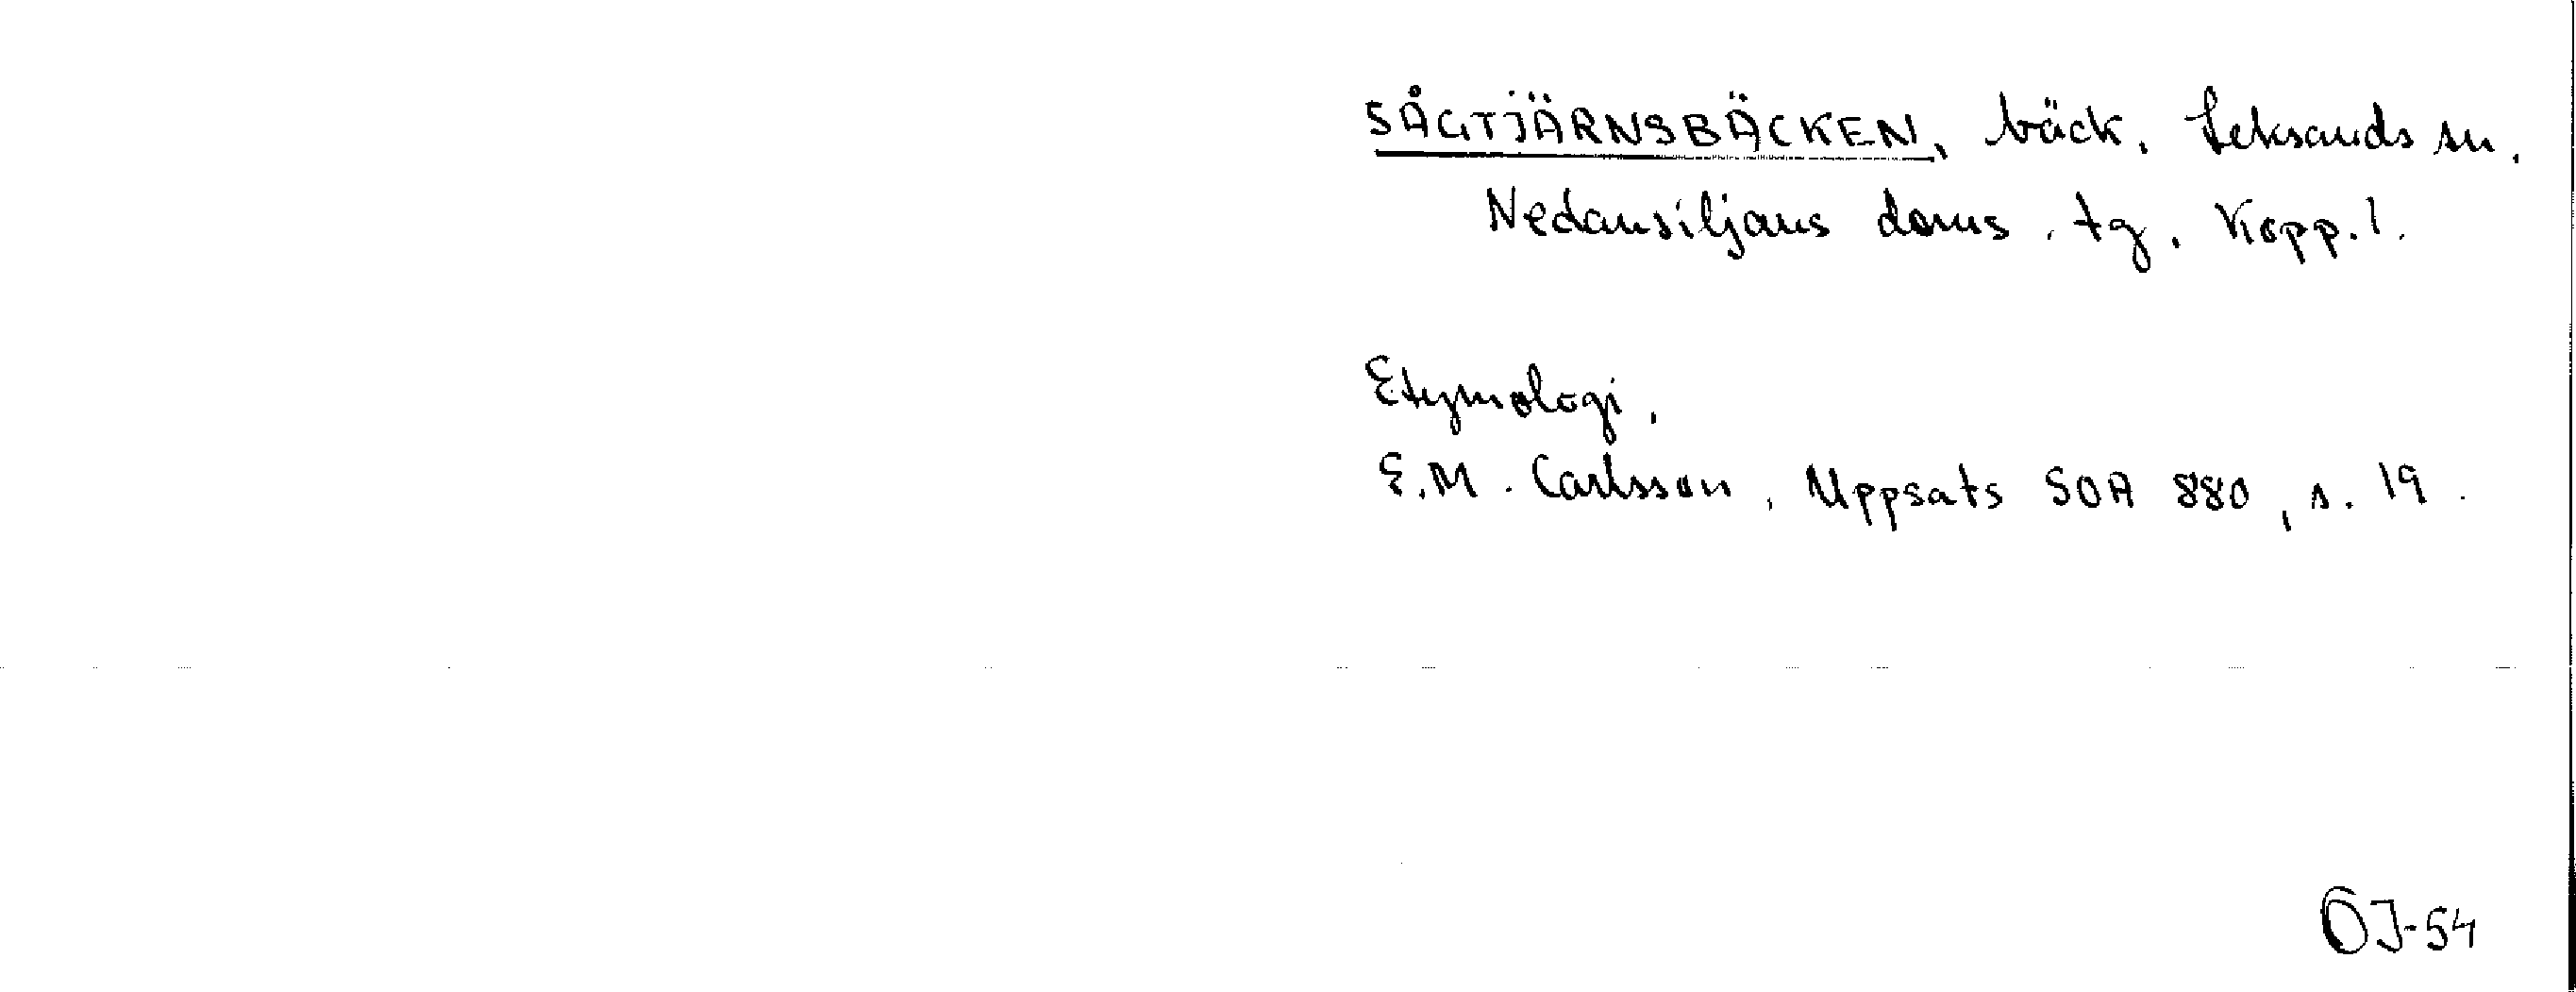 SÅGTJÄRNSBÄCKEN, bäck, Leksands sn.
Nedansiljans doms. tg, Kopp. l.
Etymologi,
E.M. Carlsson, Uppsats SOA 880, s. 19.
ÖJ-54